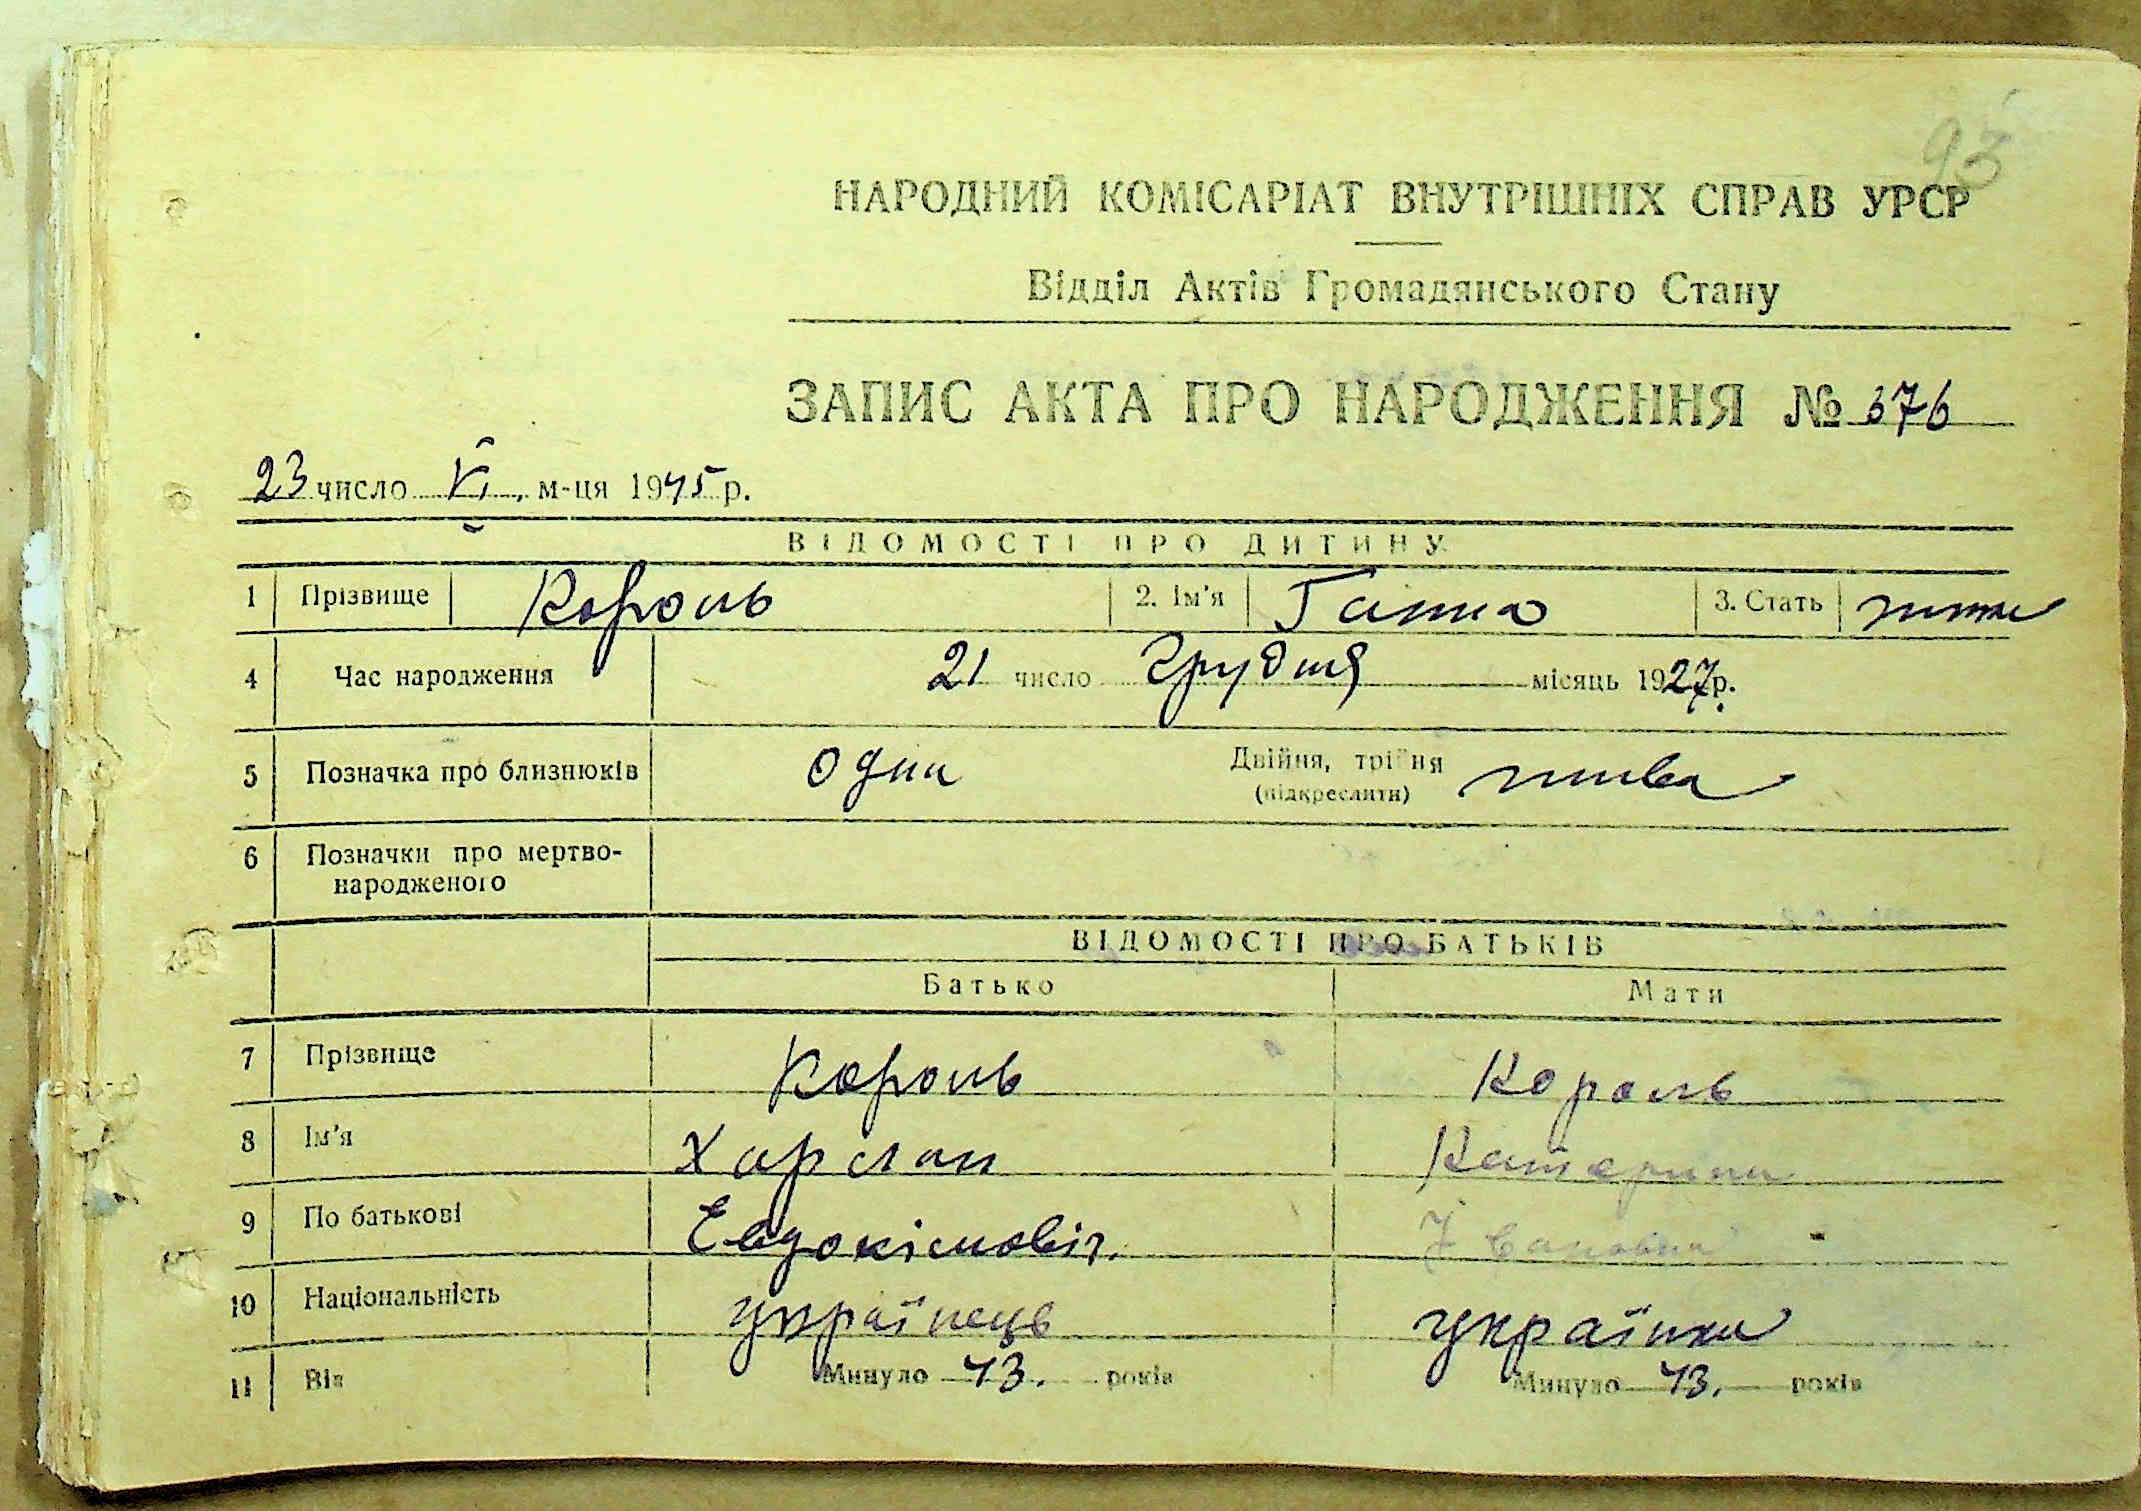 93
НАРОДНИЙ КОМІСАРІАТ ВНУТРІШНІХ СПРАВ УРСР
Відділ Актів Громадянського Стану
ЗАПИС АКТА ПРО НАРОДЖЕННЯ № 376
23 число VI м-ця 1945 р.
ВІДОМОСТІ ПРО ДИТИНУ
1 Прізвище Король 2. Ім'я Ганна 3. Стать
4 Час народження 21 число Грудня місяць 1927 р.
5 Позначка про близнюків одна Двійня, трійня жива
(підкреслити)
6 Позначки про мертво-
народженого
ВІДОМОСТІ ПРО БАТЬКІВ
Батько Мати
7 Прізвище Король Король
8 Ім'я Харлан Катерина
9 По батькові Євдокімовіч. Івановна
10 Національність українець українка
11 Вік Минуло 43. років Минуло 43. років